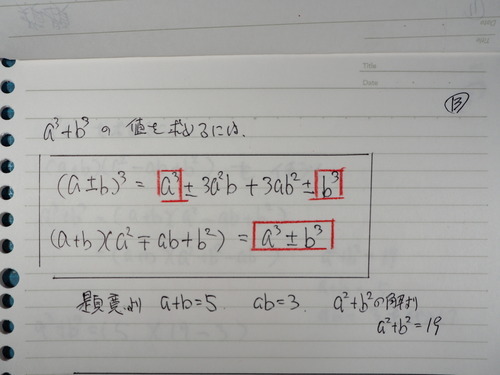 Title
Date
⑬
a³+b³ の 値を求めるには、
(a±b)³ = a³ ± 3a²b + 3ab² ± b³
(a+b)(a²∓ab+b²) = a³ ± b³
題意より a+b=5. ab=3. a²+b²の解より
a²+b²=19